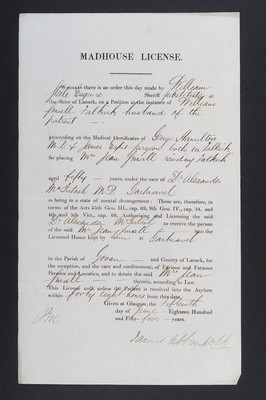 MADHOUSE LICENSE.
Whereas there is an order this day made by William
Esquire Sheriff Substitute of
the shire of Lanark, on a Petition at the instance of William
Falkirk husband of the
patient
proceeding on the Medical Certificates of George Hamilton
M.D. & James surgeons both in Falkirk
for placing Mrs Jean residing Falkirk
aged fifty years, under the care of Dr Alexander
McIntosh M.D. Gartnavel
as being in a state of mental derangement: These are, therefore, in
terms of the Acts 55th Geo. III., cap. 69, 9th Geo. IV., cap. 34, and
4th and 5th Vict., cap. 60, Authorising and Licensing the said
Dr Alexander McIntosh to receive the person
of the said Mrs Jean into the
Licensed House kept by him Gartnavel
in the Parish of Govan and County of Lanark, for
the reception, and the care and confinement, of Furious and Fatuous
Persons and Lunatics, and to detain the said Mrs Jean
therein, according to Law.
This License void, unless the Patient is received into the Asylum
within forty eight hours from this date.
Given at Glasgow, the fifteenth
day of June Eighteen Hundred
and Fifty five years.